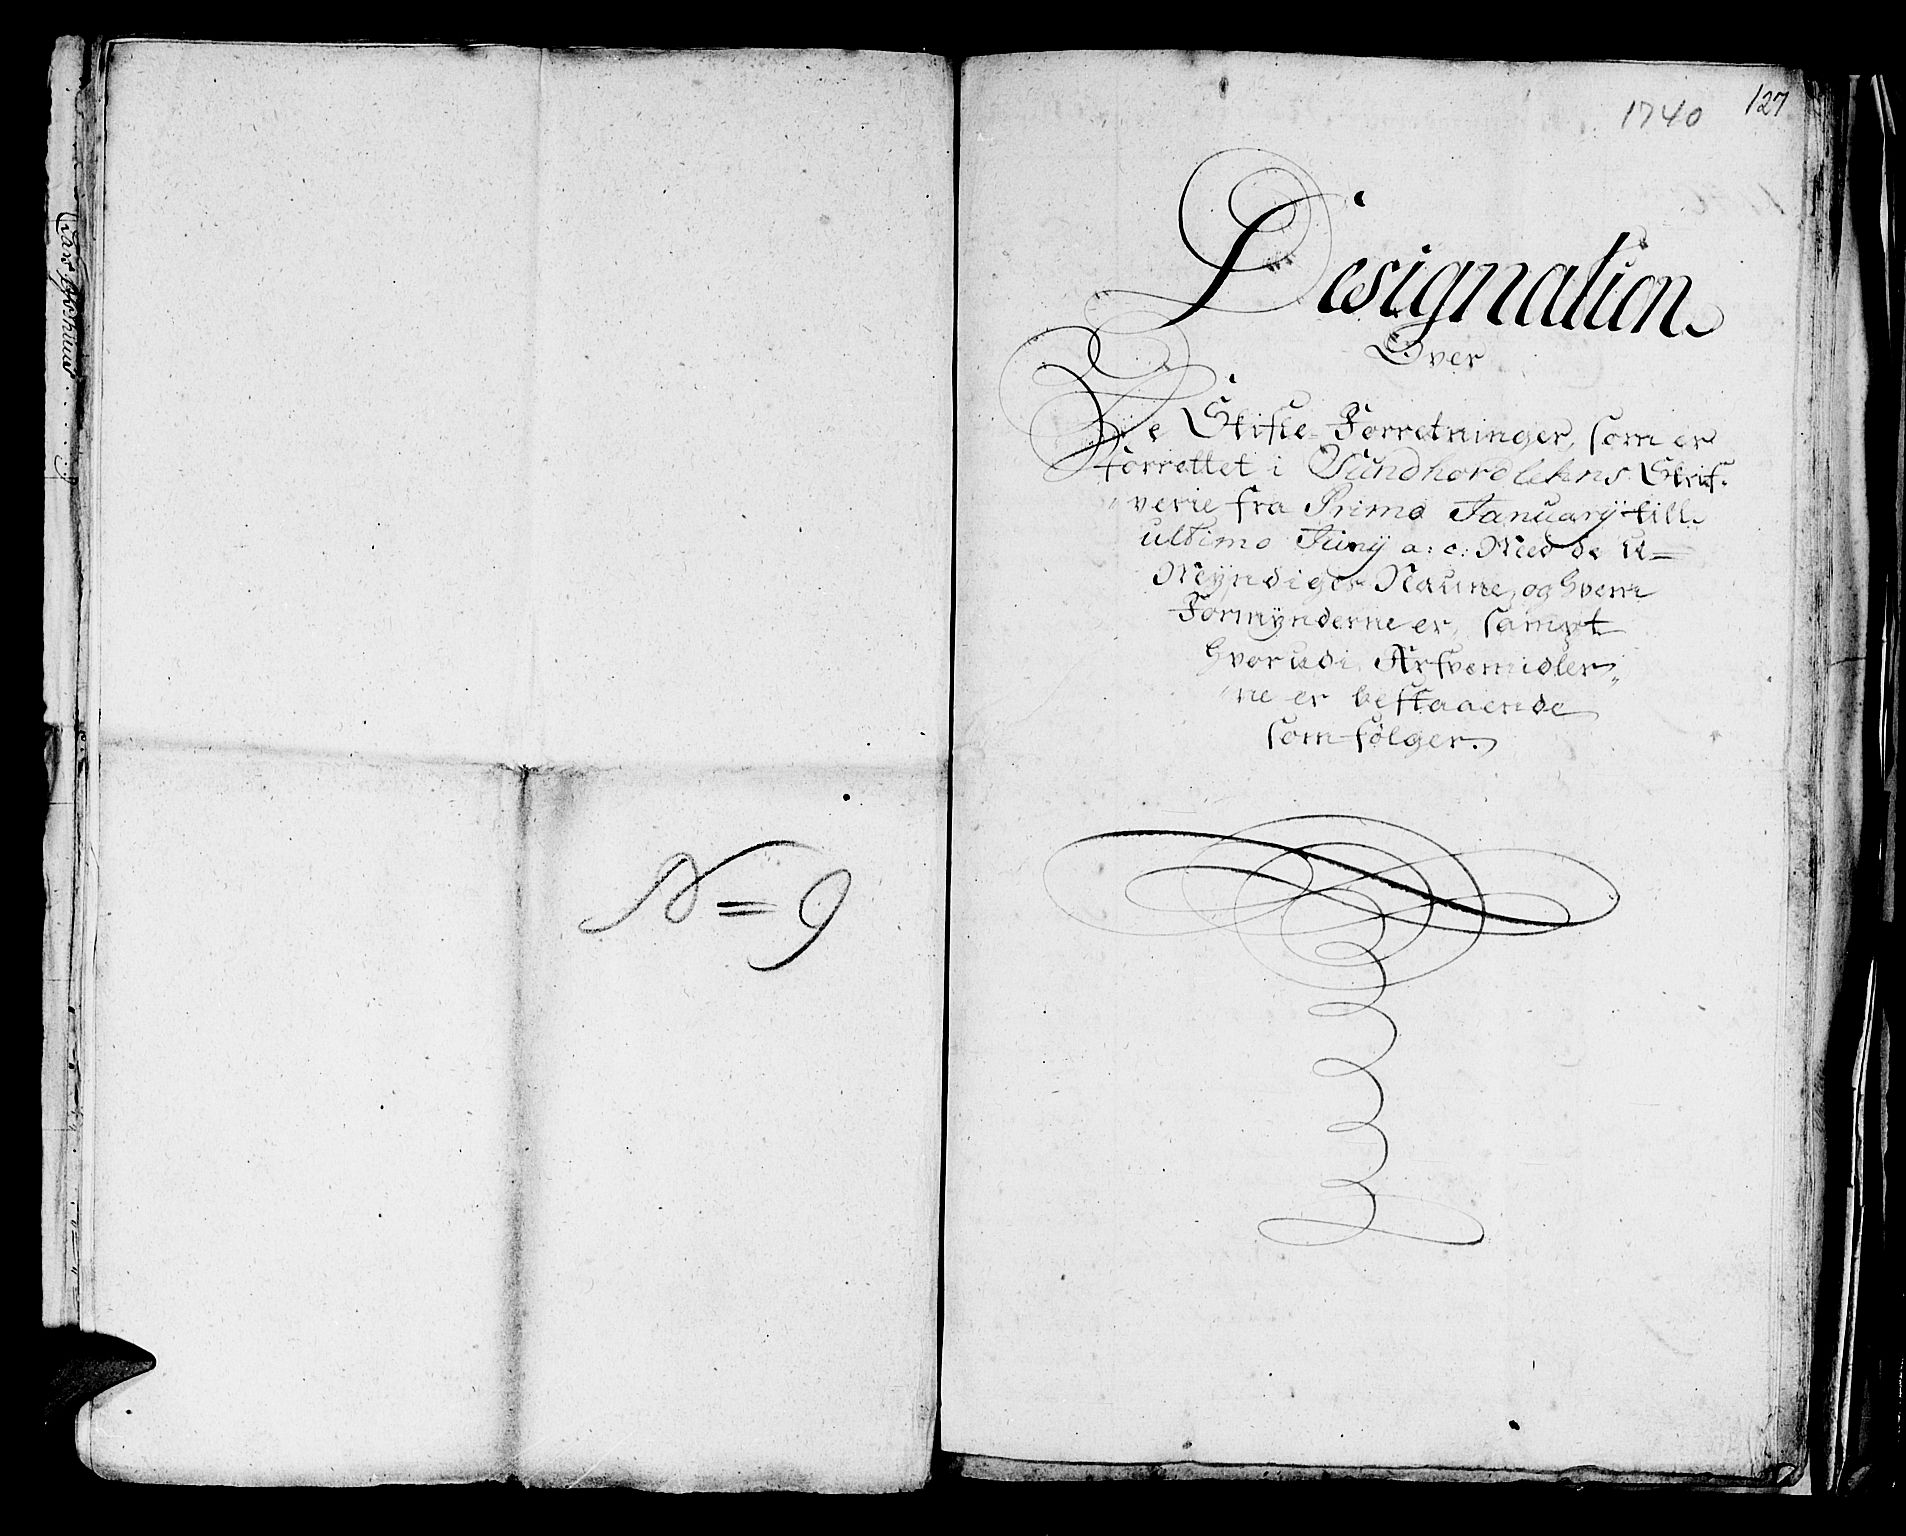 N=9
1740
127
Designation
Over
De Skifte-Forretninger, som er
forrettet i Sundhordlehns Skrif-
verie fra Primo Januarÿ till
ultimo Junÿ a: c: Med de U-
Mÿndiges Naune, og hvem
Formÿnderne er, sampt
hvorudi Arfvemidler-
ne er bestaaende
som følger.